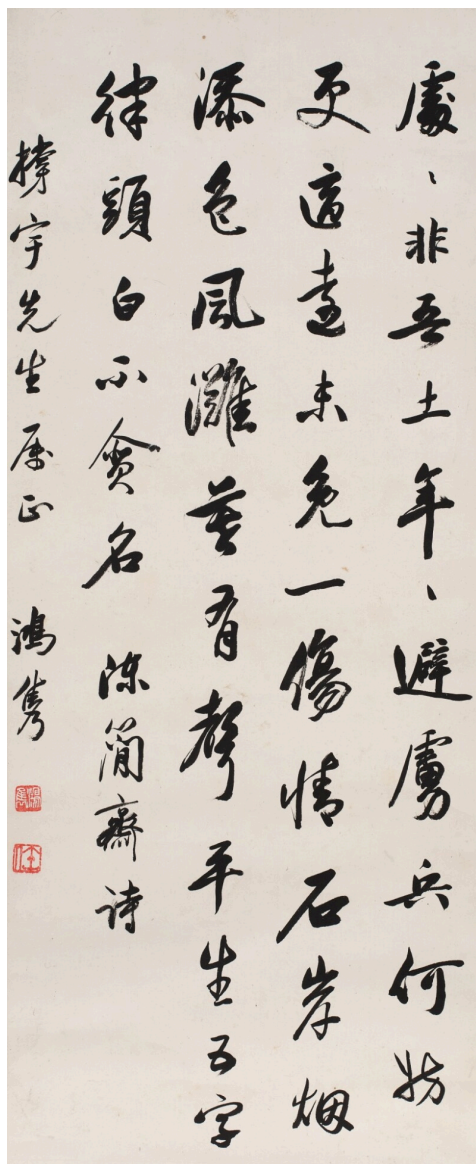 處〻非吾土年〻避虜兵何妨
更適遠未免一傷情石岸烟
添色風灘暮有聲平生五字
律頭白不貪名 陳簡齋詩
撑宇先生属正 鴻雋